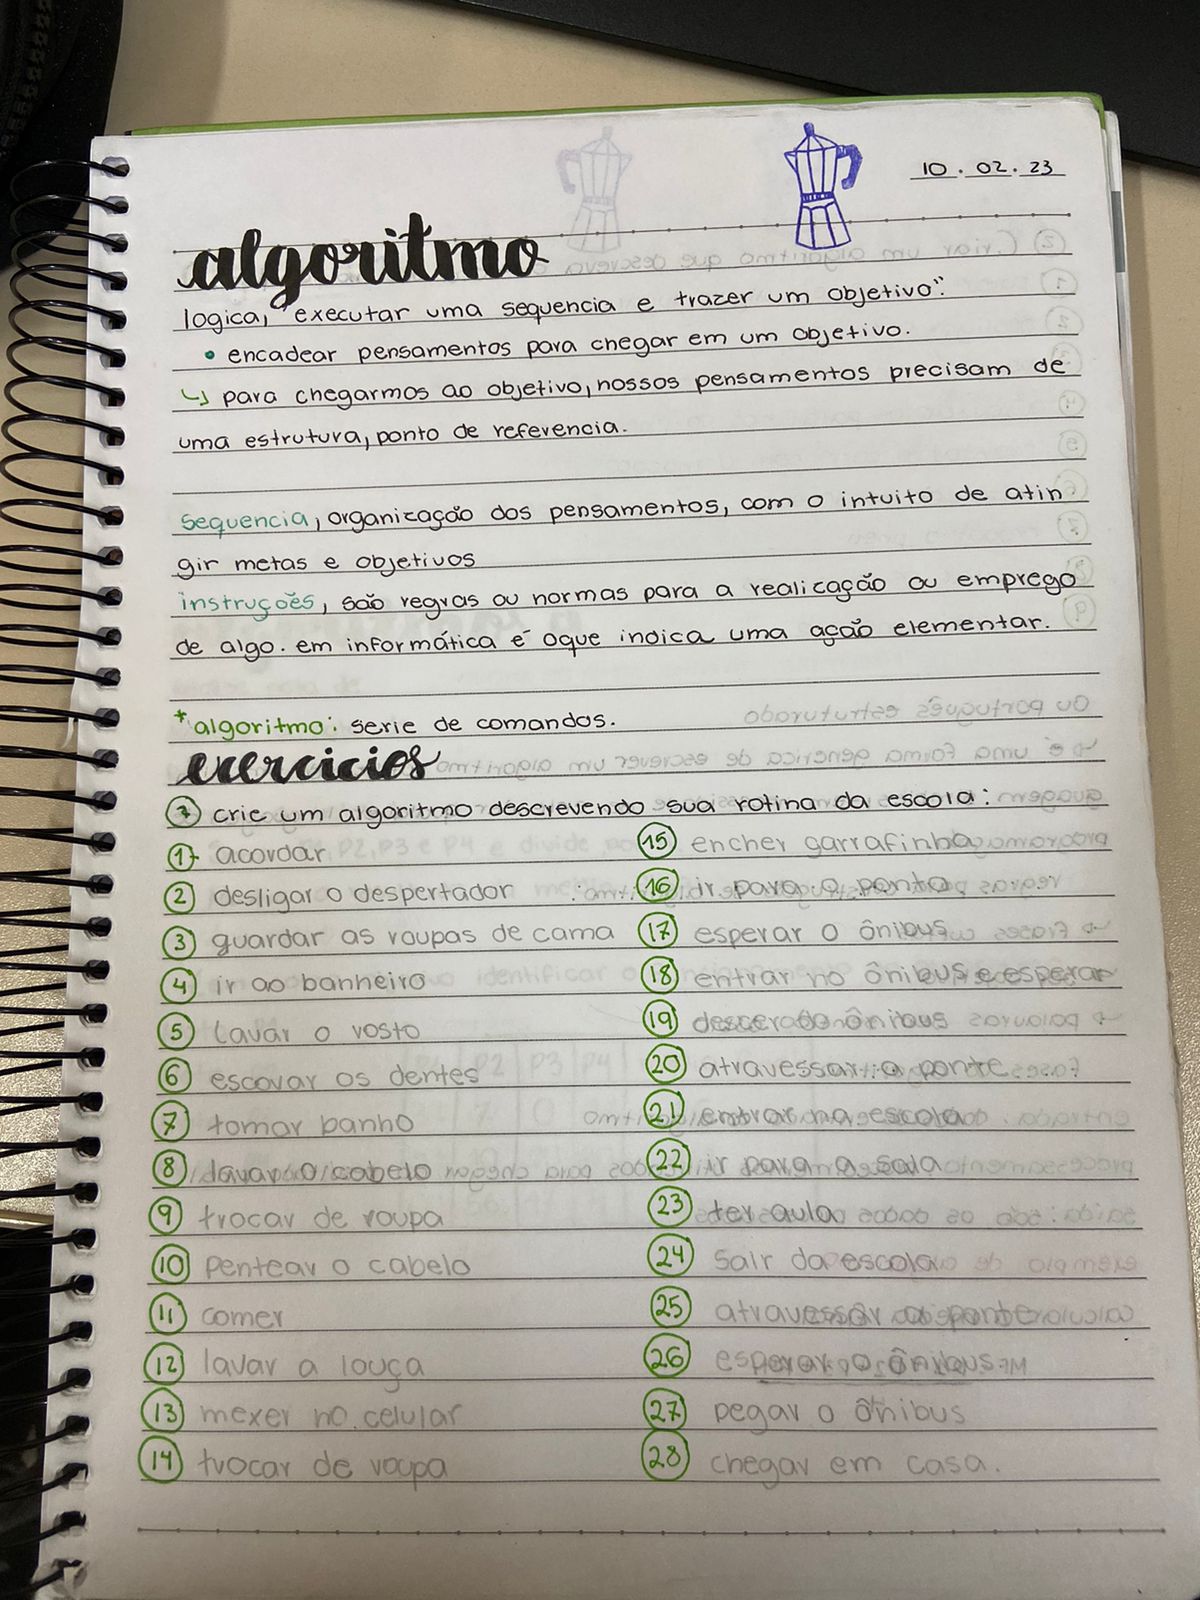 10.02.23
algoritmo
logica, "executar uma sequencia e trazer um objetivo".
• encadear pensamentos para chegar em um objetivo.
↳ para chegarmos ao objetivo, nossos pensamentos precisam de
uma estrutura, ponto de referencia.
sequencia, organização dos pensamentos, com o intuito de atin
gir metas e objetivos
instruções, são regras ou normas para a realicação ou emprego
de algo. em informática é oque indica uma ação elementar.
*algoritmo: serie de comandos.
exercicios
crie um algoritmo descrevendo sua rotina da escola:
1 acordar
2 desligar o despertador
3 guardar as roupas de cama
4 ir ao banheiro
5 lavar o rosto
6 escovar os dentes
7 tomar banho
8 lavar o cabelo
9 trocar de roupa
10 pentear o cabelo
11 comer
12 lavar a louça
13 mexer no celular
14 trocar de roupa
15 encher garrafinha
16 ir para o ponto
17 esperar o ônibus
18 entrar no ônibus e esperar
19 descer do ônibus
20 atravessar a ponte
21 entrar na escola
22 ir para a sala
23 ter aula
24 sair da escola
25 atravessar a ponte
26 esperar o ônibus
27 pegar o ônibus
28 chegar em casa.